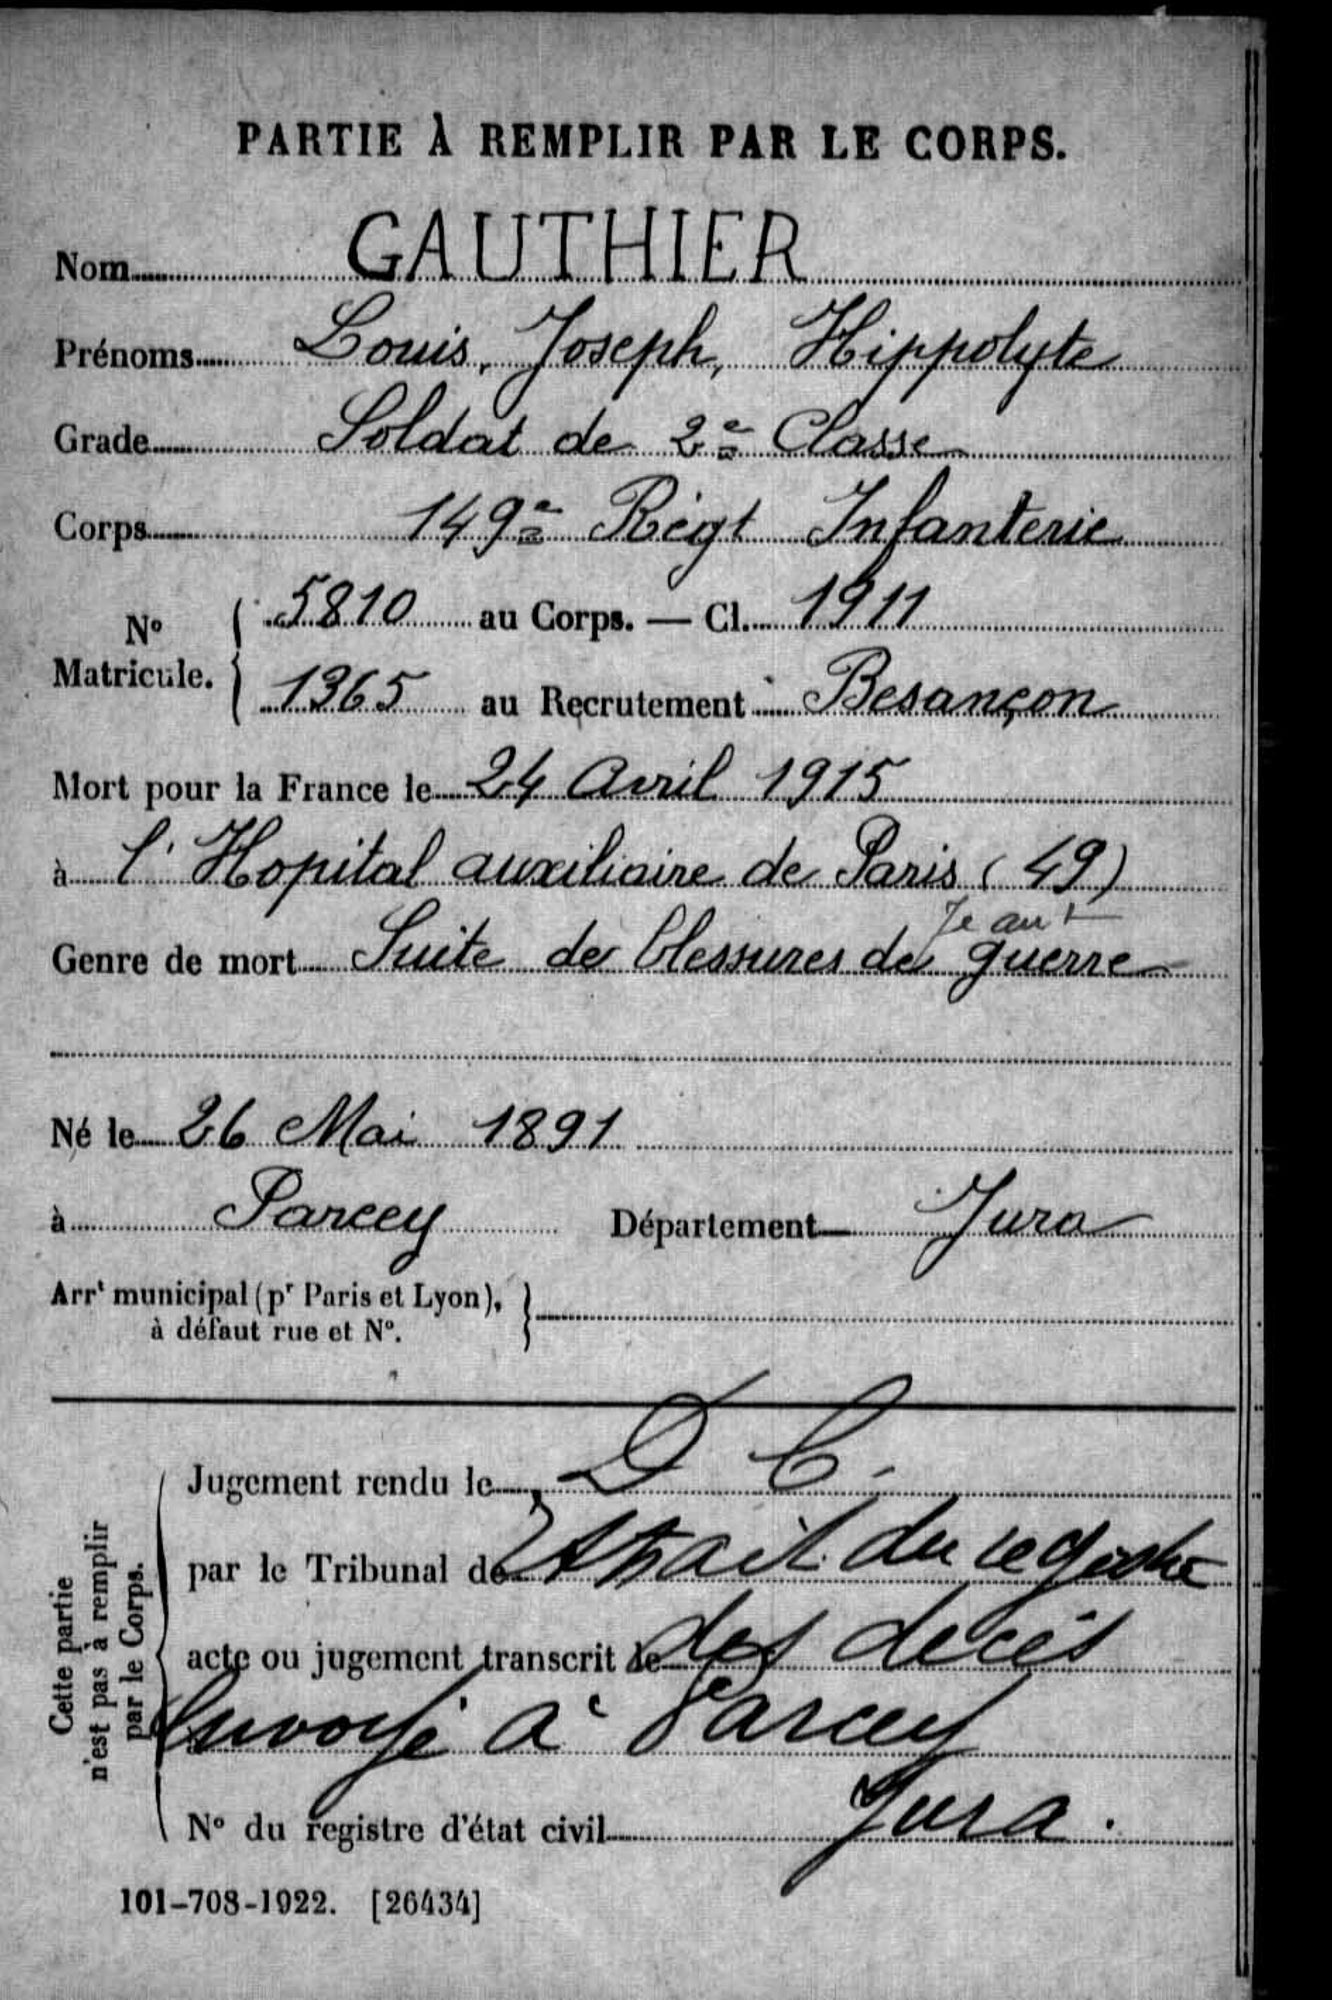 PARTIE À REMPLIR PAR LE CORPS.
Nom GAUTHIER
Prénoms Louis, Joseph, Hippolyte
Grade Soldat de 2e Classe
Corps 149e Régt Infanterie
No Matricule. { 5810 au Corps. — Cl. 1911
1365 au Recrutement Besançon
Mort pour la France le 24 Avril 1915
à l'Hopital auxiliaire de Paris (49)
Genre de mort Suite de blessures de guerre
Né le 26 Mai 1891
à Parcey Département Jura
Arrt municipal (pr Paris et Lyon), }
à défaut rue et No.
Cette partie
n'est pas à remplir
par le Corps.
Jugement rendu le D C.
par le Tribunal de Extrait du registre
acte ou jugement transcrit le des décès
Envoyé à Parcey
No du registre d'état civil Jura.
101-708-1922. [26434]